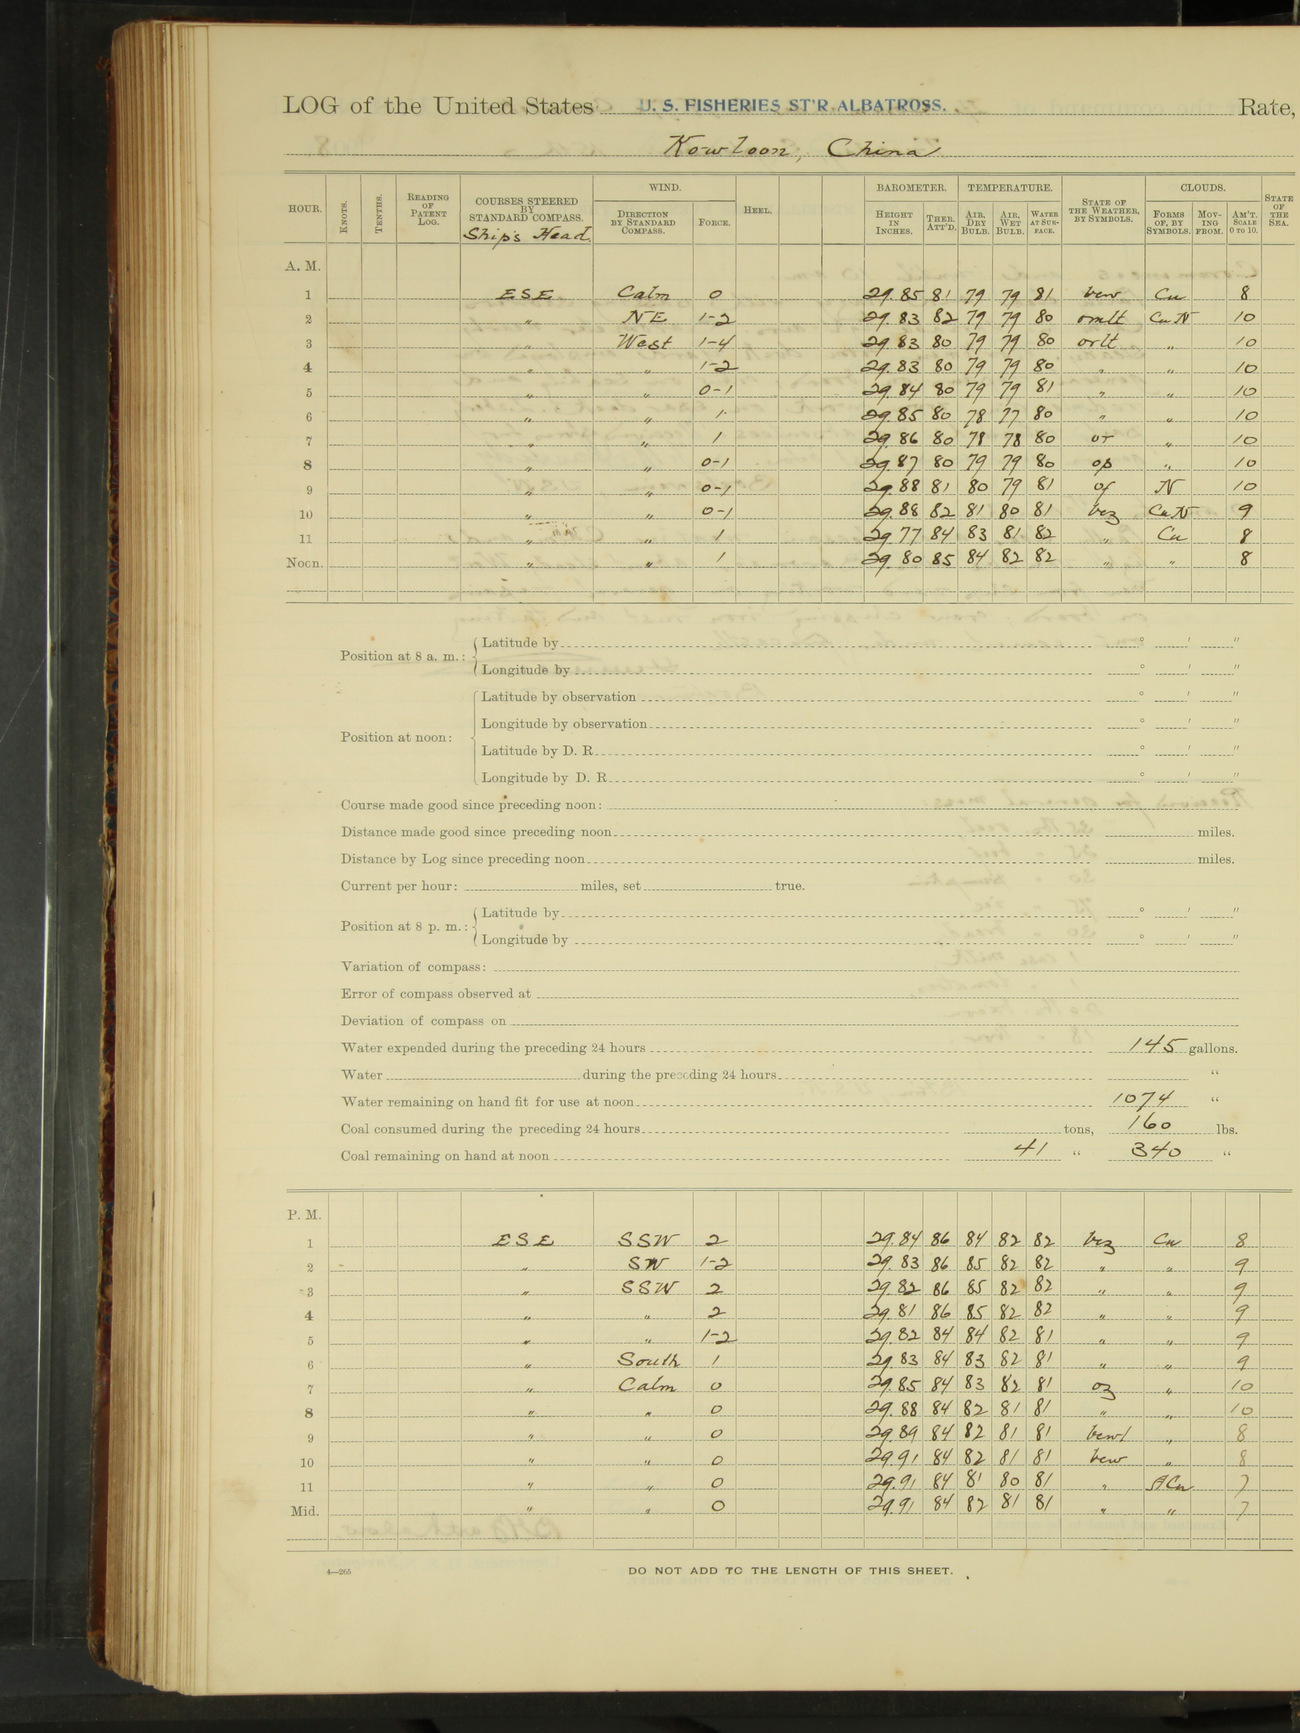 LOG of the United States U. S. FISHERIES ST'R ALBATROSS. Rate,
Kowloon, China
HOUR. KNOTS. TENTHS. READING OF PATENT LOG. COURSES STEERED BY STANDARD COMPASS. Ship's Head WIND. DIRECTION BY STANDARD COMPASS. FORCE. HEEL. BAROMETER. HEIGHT IN INCHES. THER. ATT'D. TEMPERATURE. AIR, DRY BULB. AIR, WET BULB. WATER AT SURFACE. STATE OF THE WEATHER, BY SYMBOLS. CLOUDS. FORMS OF, BY SYMBOLS. MOVING FROM. AM'T. SCALE 0 TO 10. STATE OF THE SEA.
A. M.
1 ESE Calm 0 29.85 81 79 79 81 bcw Cu 8
2 " NE 1-2 29.83 82 79 79 80 omlt CuN 10
3 " West 1-4 29.83 80 79 79 80 orlt " 10
4 " " 1-2 29.83 80 79 79 80 " " 10
5 " " 0-1 29.84 80 79 79 81 " " 10
6 " " 1 29.85 80 78 77 80 " " 10
7 " " 1 29.86 80 78 78 80 or " 10
8 " " 0-1 29.87 80 79 79 80 op " 10
9 " " 0-1 29.88 81 80 79 81 of N 10
10 " " 0-1 29.88 82 81 80 81 bcz CuN 9
11 " " 1 29.77 84 83 81 82 " Cu 8
Noon. " " 1 29.80 85 84 82 82 " " 8
Position at 8 a. m.: Latitude by ° ' "
Longitude by ° ' "
Position at noon: Latitude by observation ° ' "
Longitude by observation ° ' "
Latitude by D. R. ° ' "
Longitude by D. R. ° ' "
Course made good since preceding noon:
Distance made good since preceding noon miles.
Distance by Log since preceding noon miles.
Current per hour: miles, set true.
Position at 8 p. m.: Latitude by ° ' "
Longitude by ° ' "
Variation of compass:
Error of compass observed at
Deviation of compass on
Water expended during the preceding 24 hours 145 gallons.
Water during the preceding 24 hours "
Water remaining on hand fit for use at noon 1074 "
Coal consumed during the preceding 24 hours tons, 160 lbs.
Coal remaining on hand at noon 41 " 340 "
P. M.
1 ESE SSW 2 29.84 86 84 82 82 bcz Cu 8
2 " SW 1-2 29.83 86 85 82 82 " " 9
3 " SSW 2 29.82 86 85 82 82 " " 9
4 " " 2 29.81 86 85 82 82 " " 9
5 " " 1-2 29.82 84 84 82 81 " " 9
6 " South 1 29.83 84 83 82 81 " " 9
7 " Calm 0 29.85 84 83 82 81 oz " 10
8 " " 0 29.88 84 82 81 81 " " 10
9 " " 0 29.89 84 82 81 81 bcwl " 8
10 " " 0 29.91 84 82 81 81 bcw " 8
11 " " 0 29.91 84 81 80 81 " ACu 7
Mid. " " 0 29.91 84 82 81 81 " " 7
4—265 DO NOT ADD TO THE LENGTH OF THIS SHEET.